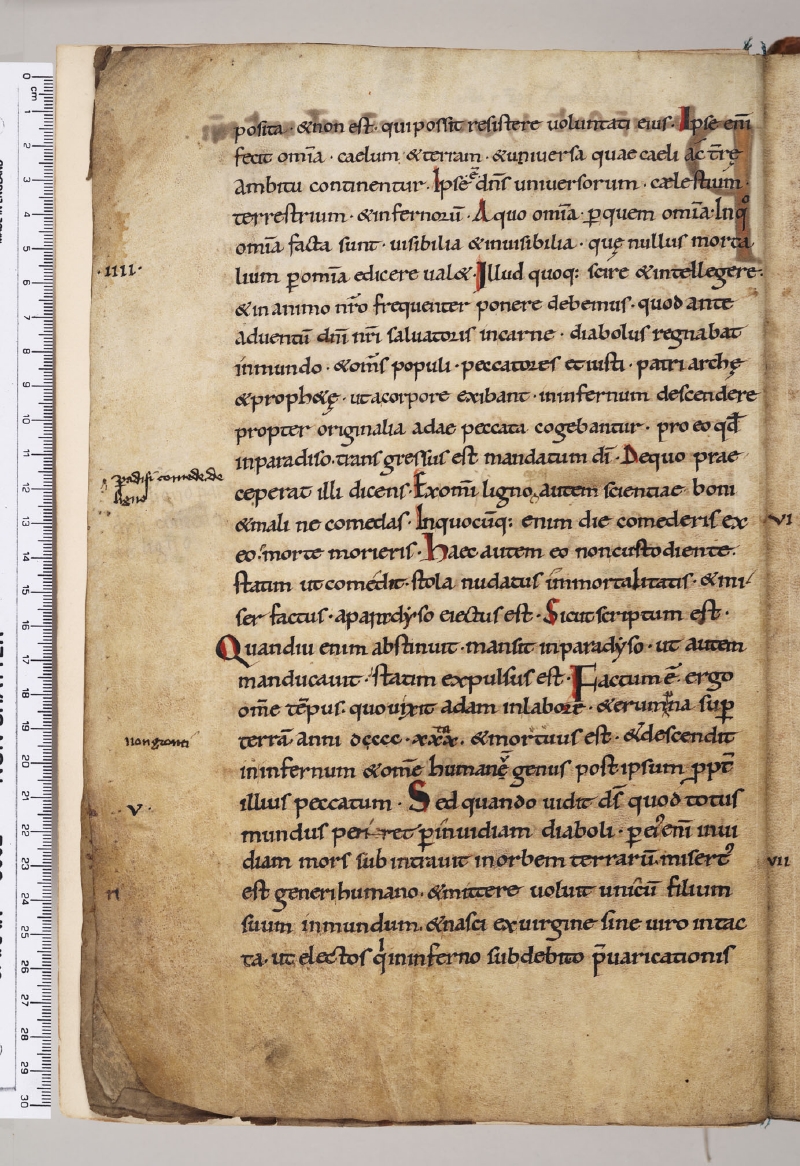 posita · & non est · qui possit resistere uoluntati eius · Ipse eni͞
fecit om̄ia · caelum & terram · & uniuersa quae caeli ac tr̄ę
ambitu continentur · Ipse ē dn̄s uniuersorum · cęlestium ·
terrestrium · & infernorū · A quo om̄ia · ꝑ quem om̄ia · In qͦ
om̄ia facta sunt · uisibilia & inuisibilia · quę nullus morta
·IIII·
lium ꝑ om̄ia edicere ual& · Illud quoq: scire & intellegere ·
& in animo nr̄o frequenter ponere debemus · quod ante
aduentū dn̄i nr̄i saluatoris incarne · diabolus regnabat
in mundo · & om̄s populi · peccatores et iusti · patriarchę
& proph&ę · ut a corpore exibant · in infernum descendere
propter originalia adae peccata cogebantur · pro eo qd̄
in paradiso · transgressus est mandatum dī · De quo prae
ꝑadisi comede · de
ligno
ceperat illi dicens · Ex omī ligno autem scientiae boni
& mali ne comedas · In quocūq: enim die comederis ex
VI
eo · morte morieris · Haec autem eo non custodiente ·
statim ut comedit · stola nudatus immortalitatis · & mi
ser factus · a paradyso eiectus est · Sicut scriptum est ·
Quandiu enim abstinuit · mansit in paradyso · ut autem
manducauit · statim expulsus est · Factum ē ergo
om̄e tēpus · quo uixit adam in labore · & erumna suꝑ
terrā anni dcccc · xxx · & mortuus est · & descendit
nongenti
in infernum & om̄e humanę genus post ipsum ꝓpt̄
illius peccatum · Sed quando uidit d̄s quod totus
·V·
mundus periret ꝑ inuidiam diaboli · ꝑ ei eni͞ inui
diam mors subintrauit in orbem terrarū · misert᾿
VII
est generi humano · & mittere uoluit unicū filium
suum in mundum · & nasci ex uirgine sine uiro intac
ta · ut electos qͥ in inferno sub debito p̄uaricationis